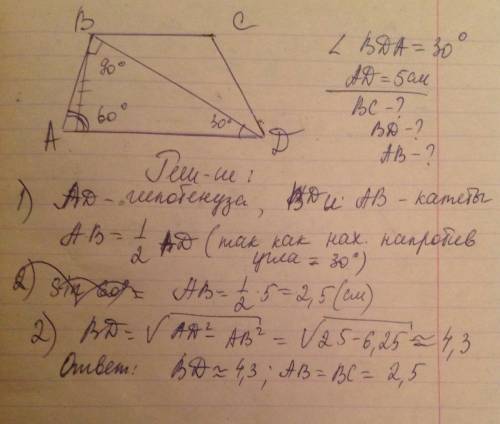 B C
90°
60°
30°
A D
∠ BDA = 30°
AD = 5см
BC - ?
BD - ?
AB - ?
Реш-ие:
1) AD - гипотенуза, BD и AB - катеты
AB = 1/2 AD (так как нах. напротив
угла = 30°)
2) sin 60° = AB = 1/2 · 5 = 2,5 (см)
2) BD = √AD² - AB² = √25 - 6,25 ≈ 4,3
Ответ: BD ≈ 4,3; AB = BC = 2,5